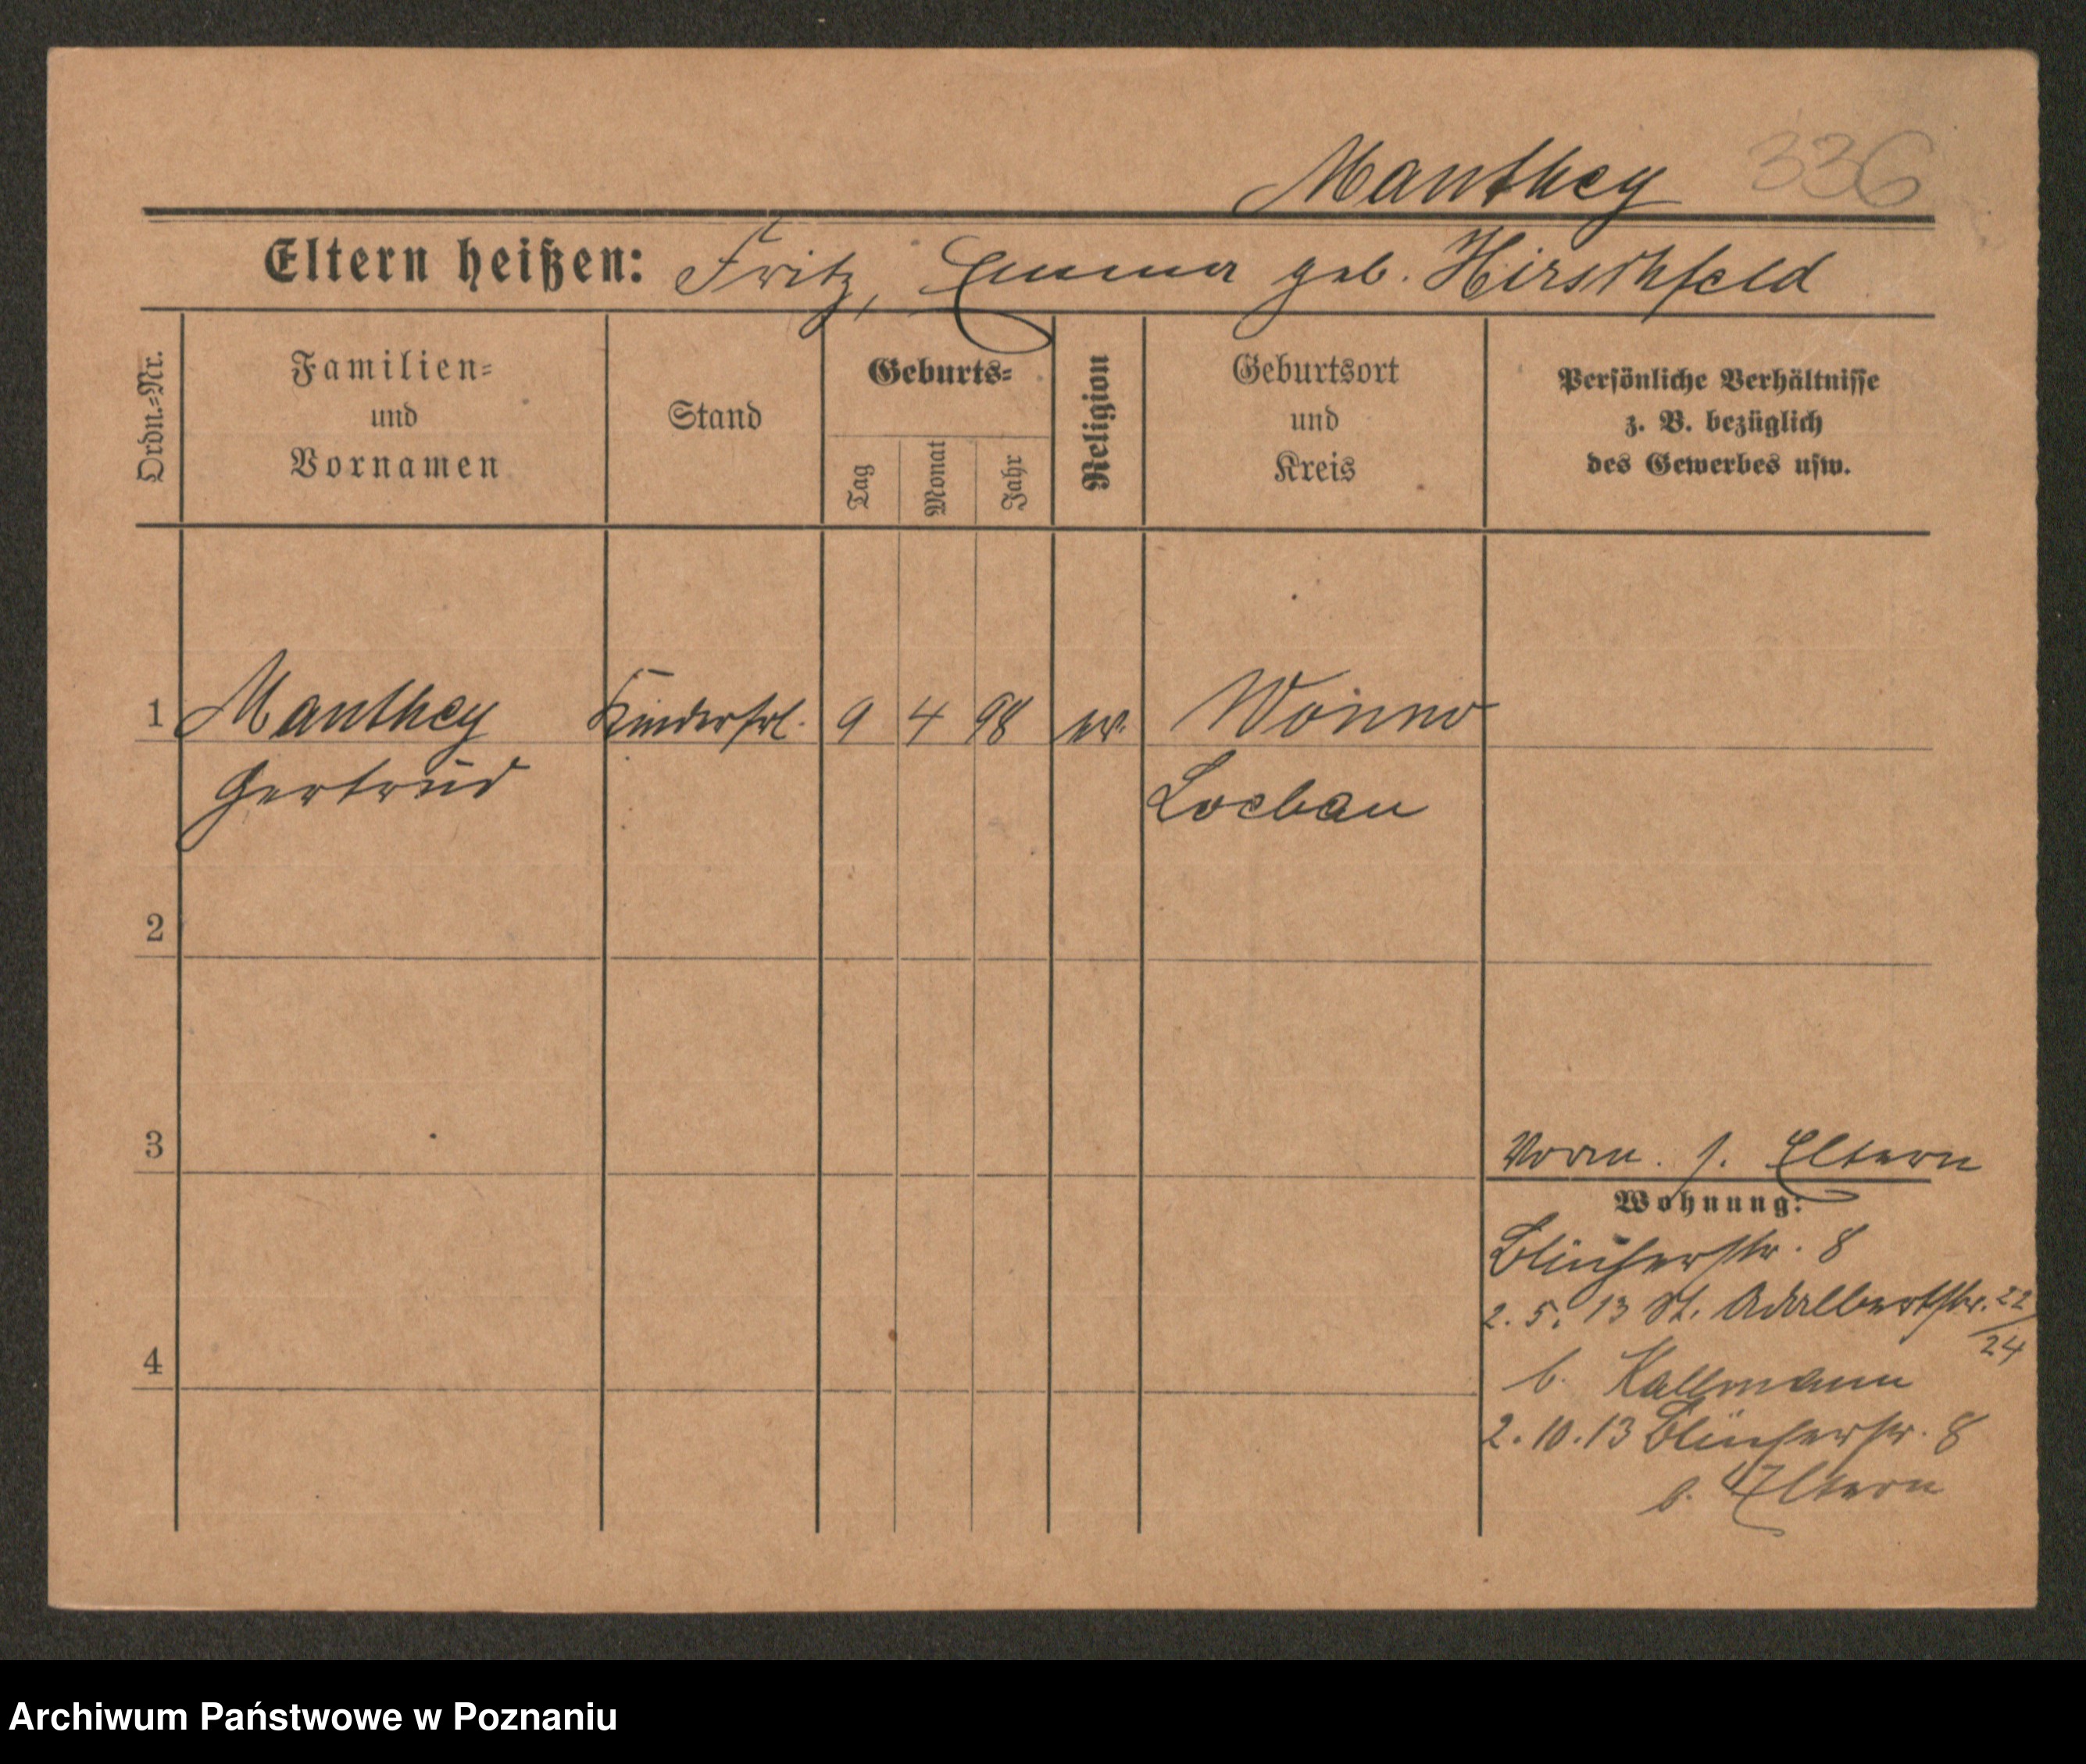 Manthey 336
Eltern heißen: Fritz, Emma geb. Hirschfeld
Ordn.-Nr.
Familien-
und
Vornamen
Stand
Geburts-
Tag
Monat
Jahr
Religion
Geburtsort
und
Kreis
Persönliche Verhältnisse
z. B. bezüglich
des Gewerbes usw.
1 Manthey Kinderfrl. 9 4 98 ev. Wonno
Gertrud Loebau
2
3
Vorm. s. Eltern
Wohnung:
Blücherstr. 8
2. 5. 13 St. Adalbertstr. 22/24
4
b. Kallmann
2. 10. 13 Blücherstr. 8
b. Eltern
Archiwum Państwowe w Poznaniu